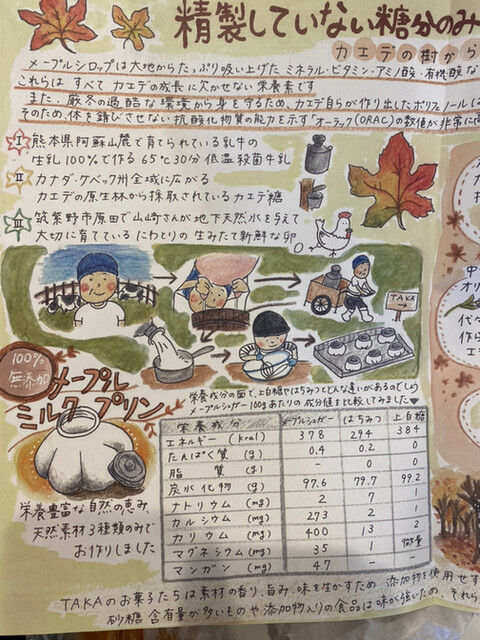 精製していない糖分のみ
カエデの樹から
メープルシロップは大地からたっぷり吸い上げた ミネラル・ビタミン・アミノ酸・有機酸な
これらは すべて カエデの成長に欠かせない栄養素です
また、厳冬の過酷な環境から身を守るため、カエデ自らが作り出したポリフェノールは
そのため、体を錆びさせない 抗酸化物質の能力を示す"オーラック(ORAC)の数値が非常に高
I 熊本県阿蘇山麓で育てられている乳牛の
生乳100%で作る 65℃30分 低温殺菌牛乳
II カナダ・ケベック州全域に広がる
カエデの原生林から 採取されているカエデ糖
III 筑紫野市原田で山崎さんが地下天然水を与えて
大切に育てている にわとりの 生みたて新鮮な卵。
TAKA
100%
無添加
メープル
ミルクプリン
栄養豊富な自然の恵み
天然素材3種類のみで
お作りしました
栄養成分の面で、上白糖やはちみつとどんな違いがあるのでしょう
メープルシュガー100gあたりの成分値を比較してみました
栄養成分 メープルシュガー はちみつ 上白糖
エネルギー (kcal) 378 294 384
たんぱく質 (g) 0.4 0.2 0
脂質 (g) - 0 0
炭水化物 (g) 97.6 79.7 99.2
ナトリウム (mg) 2 7 1
カルシウム (mg) 273 2 1
カリウム (mg) 400 13 2
マグネシウム (mg) 35 1 微量
マンガン (mg) 4.7 - -
TAKAのお菓子たちは素材の香り、旨み、味を生かすため 添加物を使用せず
砂糖含有量が多いものや添加物入りの食品は味が強いため、それら
中
オリ
代々
作ら
エ